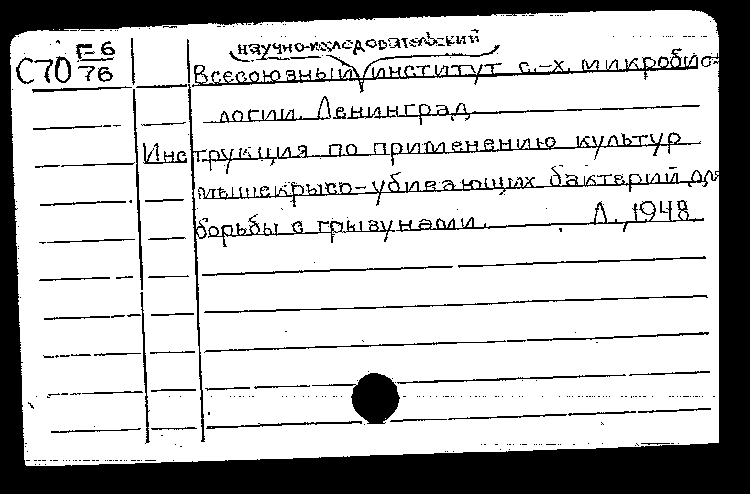 научно-исследовательский
С70 Г-6
76
Всесоюзный институт с.-х. микробио-
логии. Ленинград.
Инструкция по применению культур
мышекрысо-убивающих бактерий для
борьбы с грызунами. Л., 1948